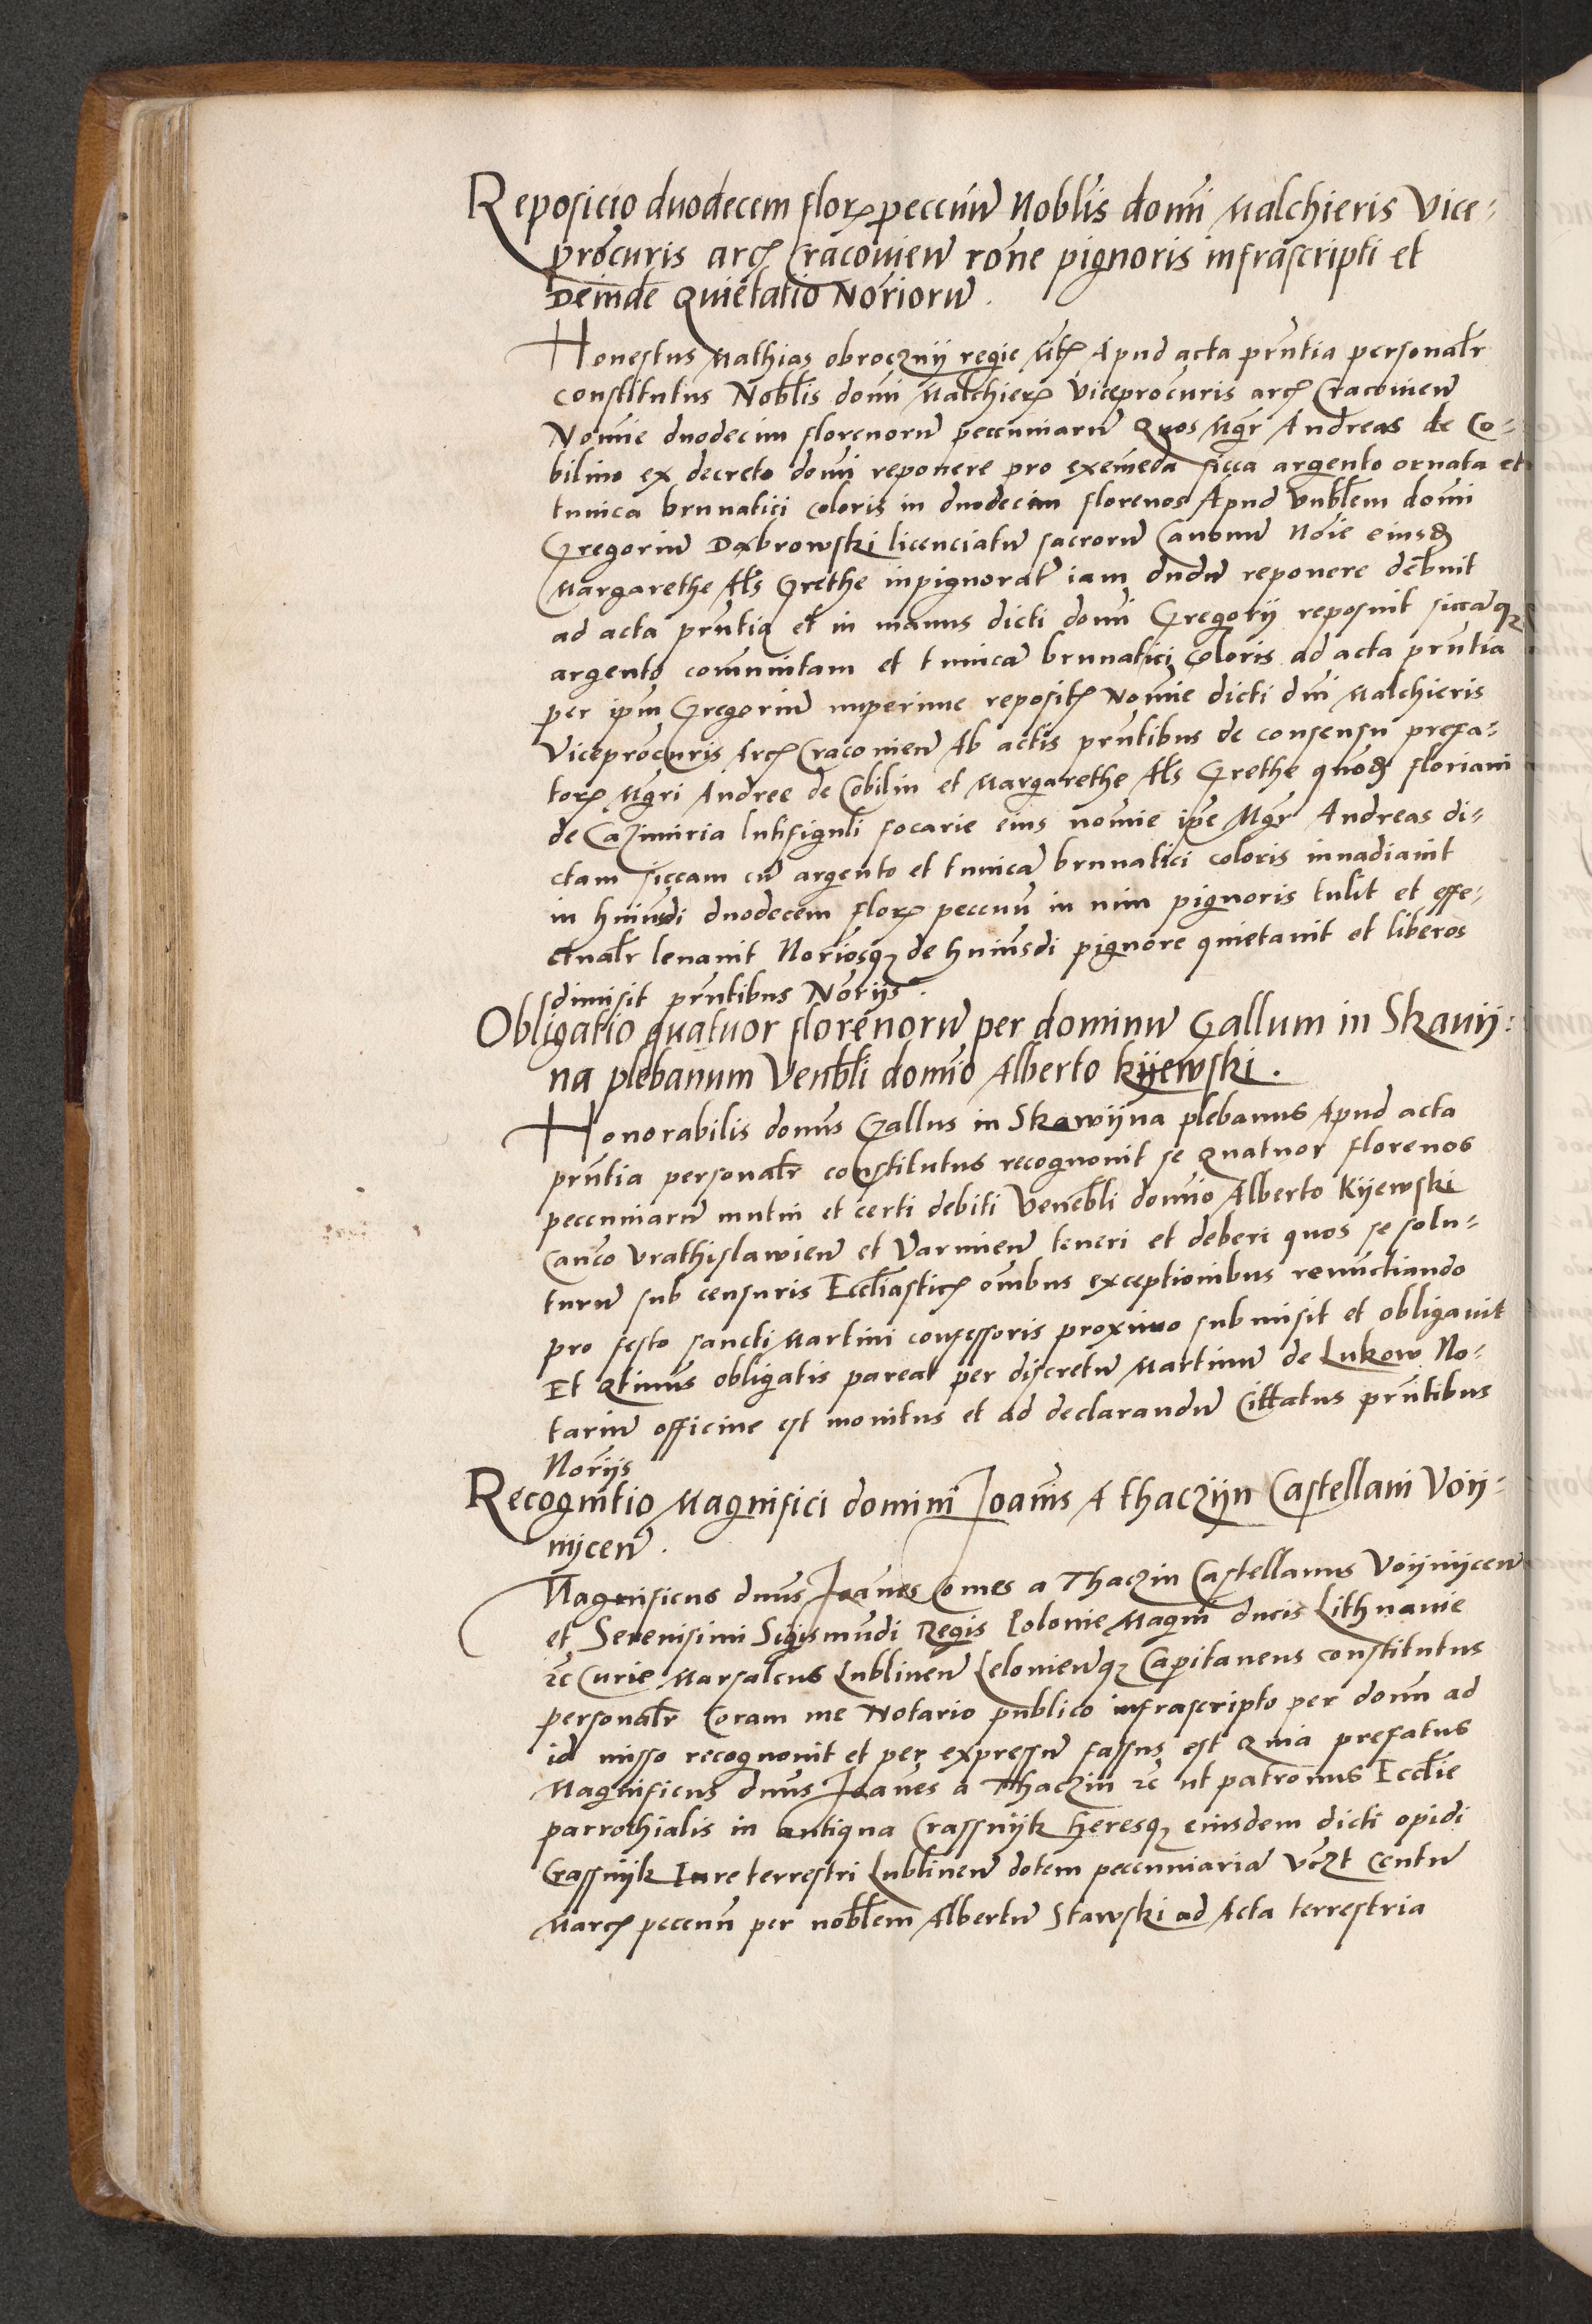 Reposicio duodecem florꝝ peccun̄ Nobl̄is domī Malchieris Vice-
prōcuris arcꝭ Cracouien̄ rōne pignoris infrascripti et
Deinde Quietatio Nōtiorū.
Honestus Mathias obrocznÿ regie Mtꝭ Apud acta pn̄tia personalr̄
constitutus Nobl̄is domī Malchierꝭ Viceprocuris arcꝭ Cracouien̄
Nomīe duodecim florenorū peccuniarū Quos Mgr̄ Andreas de Co-
bilino ex decreto domī reponere pro exemēda sicca argento ornata et
tunica brunatici coloris in duodecim florenos Apud Vnbl̄em domī
Gregoriū Dąbrowski licenciatū sacrorū Canonū Nōie eiusdꝫ
Margarethe Al̄s Grethe inpignorat̄ iam dudū reponere debuit
ad acta pn̄tia et in manus dicti domī Gregorij reposuit siccāqꝫ
argento communitam et tunicā brunatici coloris ad acta pn̄tia
per ipm̄ Gregoriū nuperime repositꝭ Nomīe dicti dn̄i Malchieris
Viceprōcuris Arcꝭ Cracouien̄ Ab actis pn̄tibus de consensu prefa-
torꝝ Mgr̄i Andree de Cobilin et Margarethe Al̄s Grethe quōdꝫ floriani
de Cazimiria lutifiguli focarie eius nomīe ip̄e Mgr̄ Andreas di-
ctam siccam cū argento et tunicā brunatici coloris inuadiauit
in huiusdi duodecem florꝝ peccun̄ in vim pignoris tulit et effe-
ctualr̄ leuauit Noriosqꝫ de huiusdi pignore quietauit et liberos
dimisit pn̄tibus Norijs.
Obligatio quatuor florenorū per dominū Gallum in Skauij-
na plebanum Venbl̄i domīo Alberto kijewski.
Honorabilis domūs Gallus in Skawijna plebanus Apud acta
pn̄tia personalr̄ constitutus recognouit se Quatuor florenos
peccuniarū mutui et certi debiti Venēbl̄i domīo Alberto Kijewski
Canco Vrathislawien̄ et Varmien̄ teneri et deberi quos se solu-
turū sub censuris Eccl̄iasticꝭ omībus exceptionibus renūctiando
pro festo sancti Martini confessoris proximo submisit et obligauit
Et Qtinus obligatis pareat per discretū Martinū de Lukow No-
tariū officine est monitus et ad declarandū Cittatus pn̄tibus
Norijs
Recognitio Magnifici domini Ioanīs A thaczijn Castellani Voij-
nijcen̄.
Magnificus dnūs Ioānes Comes a Thaczin Castellanus Voijnijcen̄
et Serenisimi Sigismūdi Regis Polonie Magni ducis Lithuanie
rc̄ Curie Marsalcus Lublinen̄ Belonien̄qꝫ Capitaneus constitutus
personalr̄ Coram me Notario publico infrascripto per domū ad
id misso recognouit et per expressū fassus est Quia prefatus
Magnificus dnūs Ioānes a Thaczin rc̄ ut patronus Eccl̄ie
parrochialis in antiqua Crassnijk Heresqꝫ eiusdem dicti opidi
Crassnijk Iure terrestri Lublinen̄ dotem peccuniariā Vcꝫt Centū
Marcꝭ peccun̄ per nobl̄em Albertū Stawski ad Acta terrestria